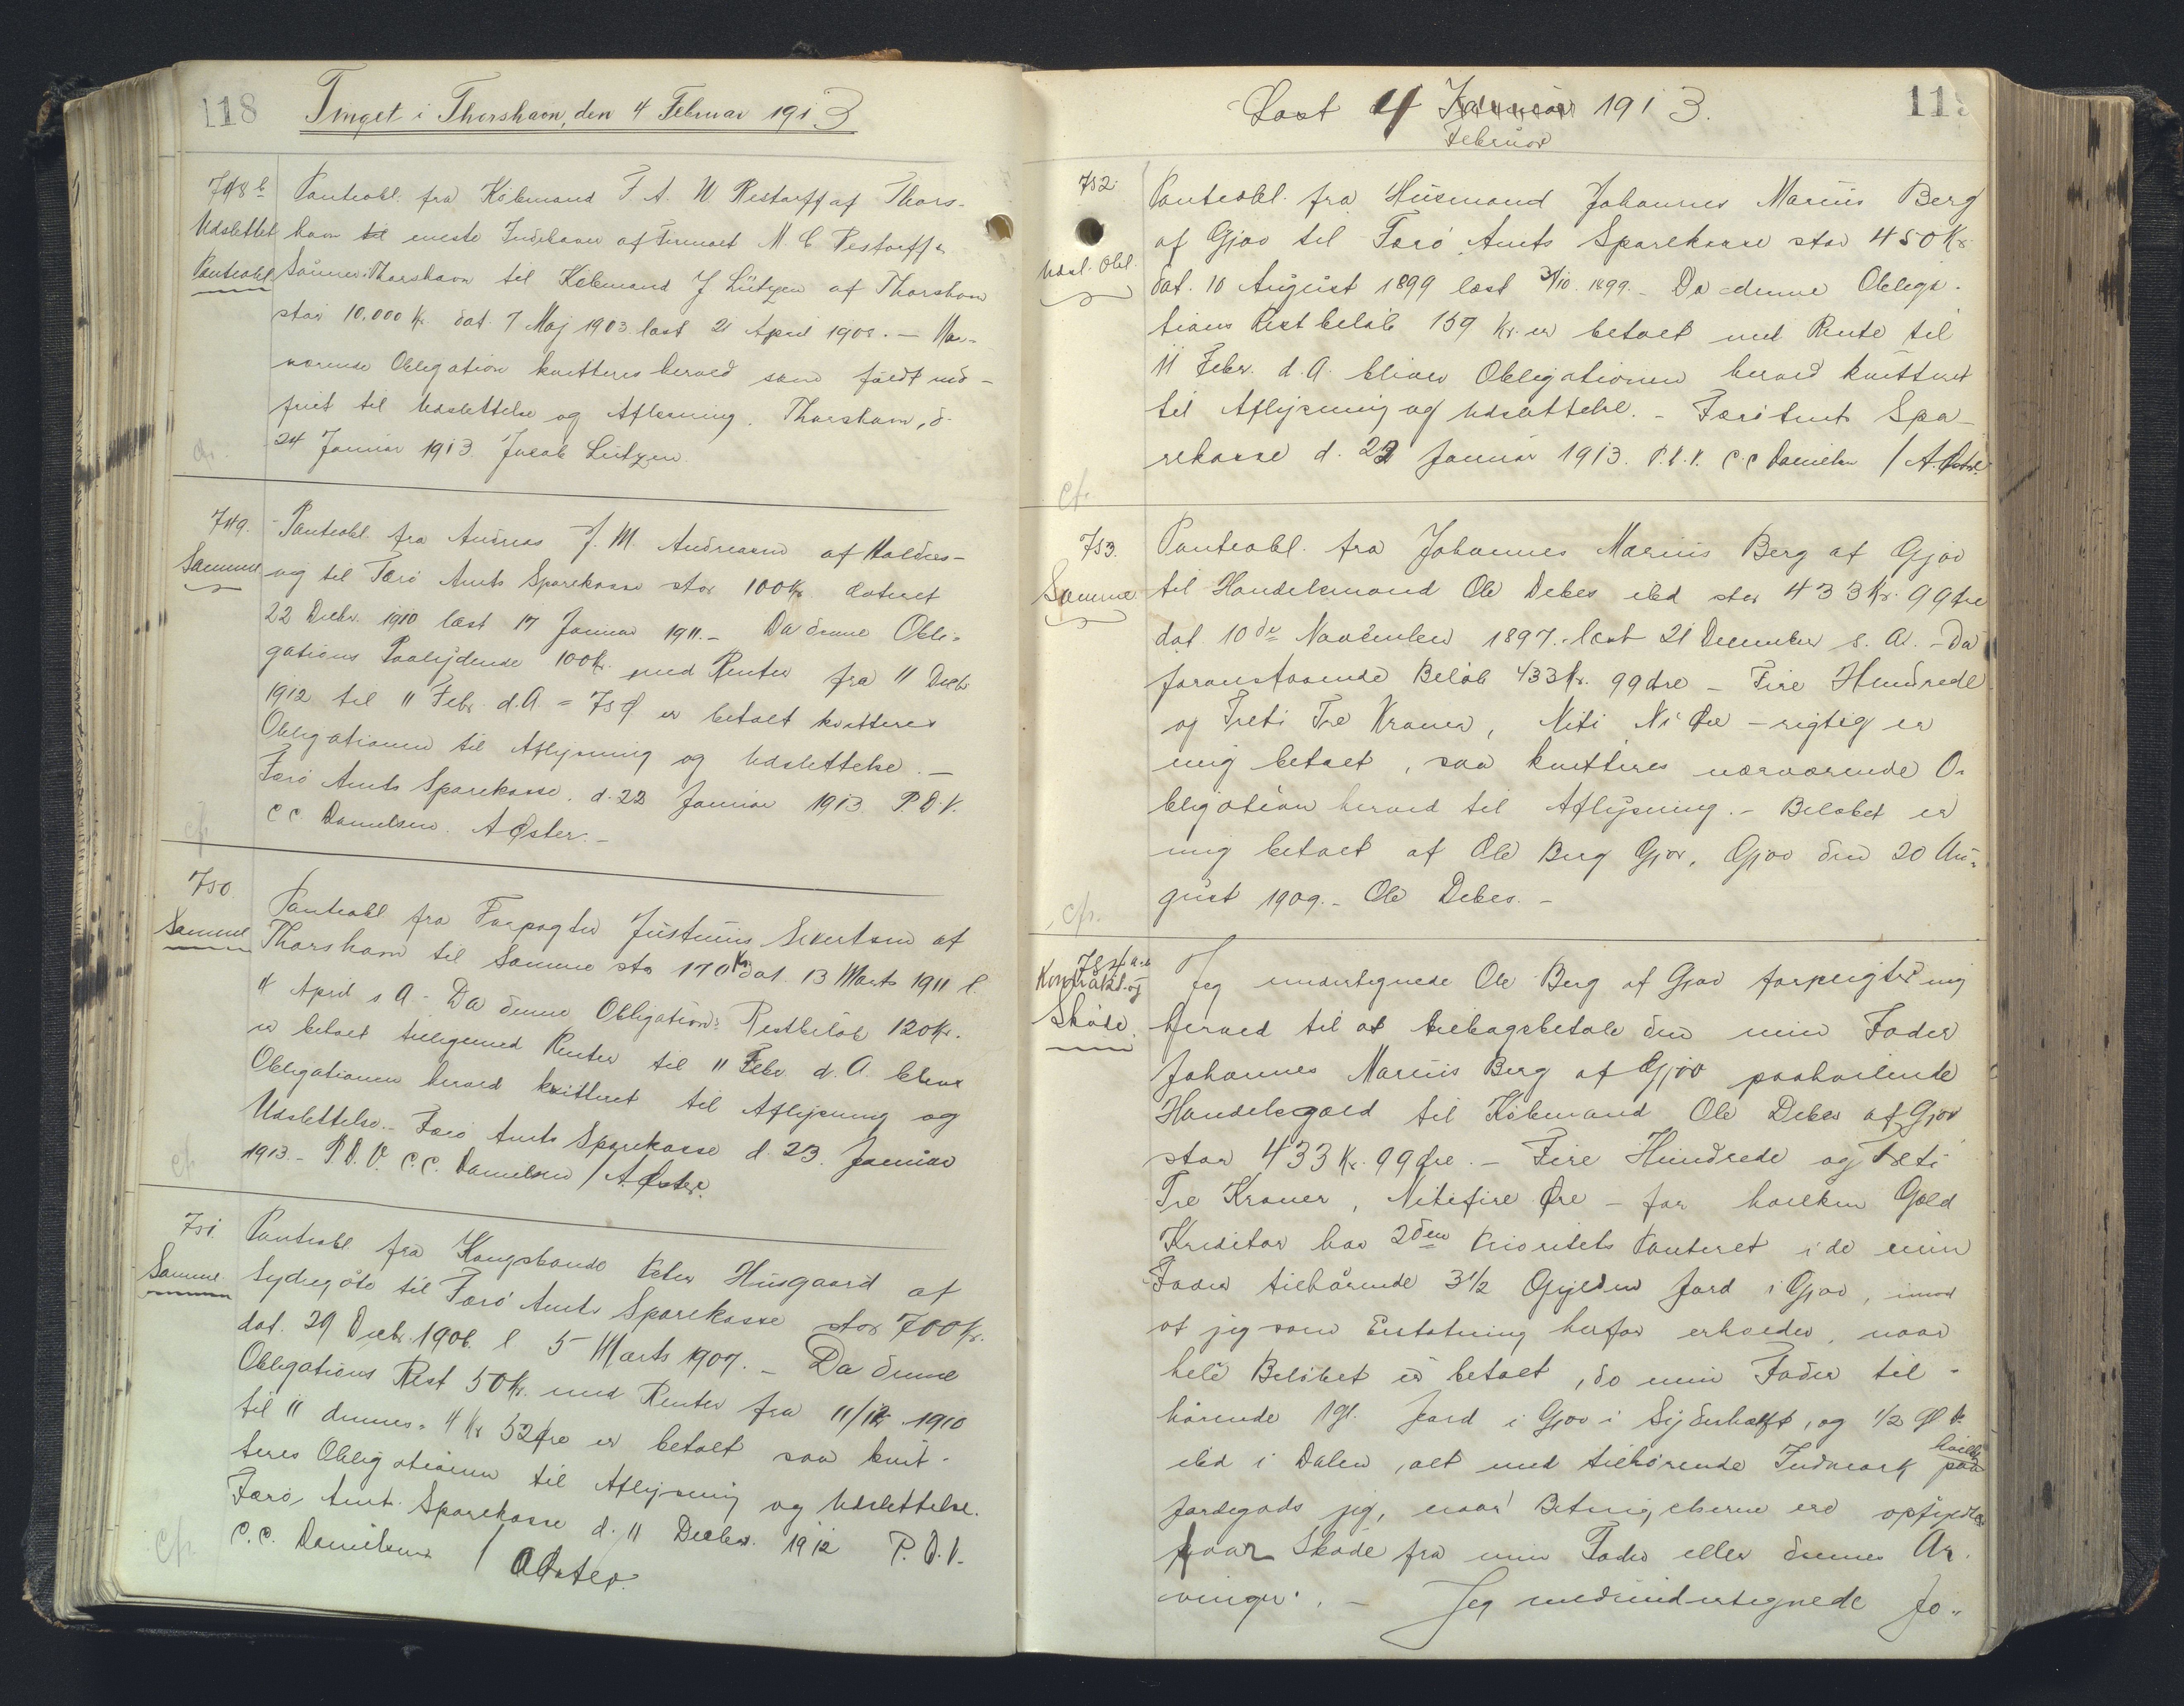 118
Tinget i Thorshavn, den 4 Februar 1913
748 b
Udslettet
Panteobl.
Panteobl. fra Købmand F. A. W Restorff af Thors-
havn til eneste Indehaver af Firmaet M. C Restorff &
Sønner i Thorshavn til Købmand J Lützen af Thorshavn
stor 10.000 Kr. dat. 7 Maj 1903 læst 21 April 1908. — Nær-
værende Obligation kvitteres herved som fuldt ind-
friet til Udslettelse og Aflæsning. Thorshavn, d.
24 Januar 1913 Jacob Lützen.
749.
Samme
Panteobl. fra Andreas J. M. Andreasen af Halders-
vig til Færø Amts Sparekasse stor 100 Kr. dateret
22 Decbr. 1910 læst 17 Januar 1911. – Da denne Obli-
gations Paalydende 100 Kr. med Renter fra 11 Decb
1912 til 11 Febr. d. A = 75 Ø er betalt kvitteres
Obligationen til Aflysning og Udslettelse. —
Færø Amts Sparekasse. d. 22 Januar 1913. P.D.V.
C C Danielsen. A Øster. –
750
Samme
Panteobl fra Forpagter Justinus Sivertsen af
Thorshavn til Samme stor 170 Kr dat. 13 Marts 1911 l.
4 April s A - Da denne Obligations Restbeløb 120 Kr.
er betalt tilligemed Renter til 11 Febr d. A bliver
Obligationen herved kvitteret til Aflysning og
Udslettelse. – Færø Amts Sparekasse d. 23. Januar
1913. – P. D. V. C. C. Danielsen / A. Øster.
751.
Samme.
Panteobl fra Kongsbonde Peter Husgaard af
Sydregøte til Færø Amts Sparekasse stor 700 Kr.
dat. 29 Decbr. 1906. l 5 Marts 1907. – Da denne
Obligations Rest 50 Kr. med Renter fra 11/12 1910
til 11 dennes = 4 Kr 52 Øre er betalt saa kvit-
teres Obligationen til Aflysning og Udslettelse.
Færø Amts Sparekasse d. 11 Decbr. 1912 P. D. V.
C. C. Danielsen / A Øster.
119
Læst 4 Januar 1913.
Februar
752.
Udsl. Obl.
Panteobl. fra Husmand Johannes Marius Berg
af Gjov til Færø Amts Sparekasse stor 450 Kr.
dat. 10 August 1899 læst 31/10. 1899. – Da denne Obliga-
tions Restbeløb 159 Kr. er betalt med Rente til
11 Febr. d. A. bliver Obligationen herved kvitteret
til Aflysning og Udslettelse. – Færø Amts Spa-
rekasse d. 22 Januar 1913. P. D. V. C. C Danielsen / A. Øster.
753.
Samme
Panteobl. fra Johannes Marius Berg af Gjov
til Handelsmand Ole Debes ibd stor 433 Kr. 99 Øre
dat. 10de November 1897. læst 21 December s. A. – Da
foranstaaende Beløb 433 Kr. 99 Øre – Fire Hundrede
og Treti Tre Kroner, Niti Ni Øre – rigtig er
mig betalt, saa kvitteres nærværende O-
bligation herved til Aflysning. – Beløbet er
mig betalt af Ole Berg Gjov, Gjov den 20 Au-
gust 1909. – Ole Debes. –
754 a-b
Kontrakt og
Skøde.
Jeg undertegnede Ole Berg af Gjov forpligter mig
herved til at tilbagebetale den min Fader
Johannes Marius Berg af Gjov paahvilende
Handelsgæld til Købmand Ole Debes af Gjov
stor 433 Kr. 99 Øre. – Fire Hundrede og Treti
Tre Kroner, Nitifire Øre – for hvilken Gæld
Kreditor har 2den Prioritets Panteret i de min
Fader tilhørende 3½ Gylden Jord i Gjov, imod
at jeg som Erstatning herfor erholder, naar
hele Beløbet er betalt, de min Fader til-
hørende 1 gl. Jord i Gjov i Syderhalft, og ½ Gl.
ibd i Dalen, alt med tilhørende Indmark paa hvilke
Jordegods jeg, naar Betingelserne ere opfyldte
faar Skøde fra min Fader eller dennes Ar-
vinger. – Jeg medundertegnede Jo-